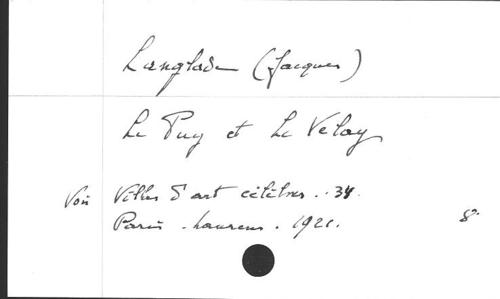 Langlade (Jacques)
Le Puy et Le Velay
Voir Villes d'art célèbres . 34.
Paris . Laurens . 1921. 8º